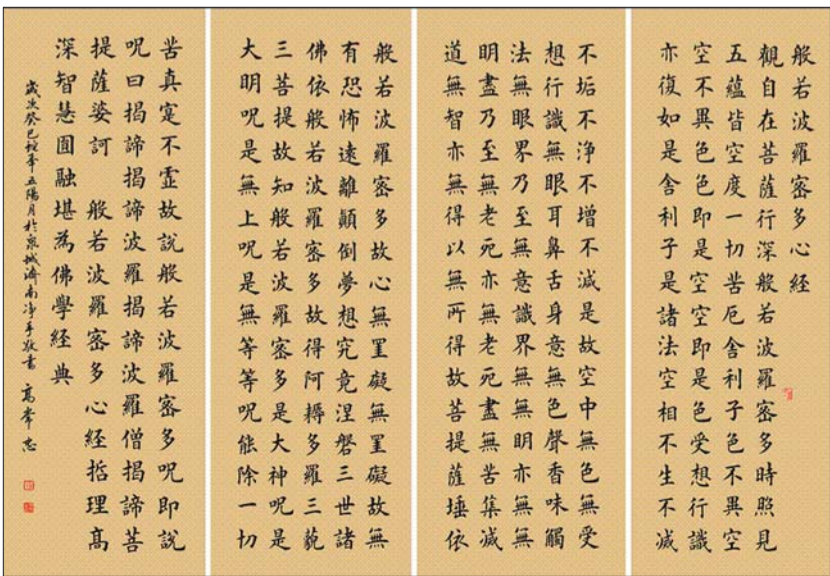 般若波羅密多心經
觀自在菩薩行深般若波羅密多時照見
五蘊皆空度一切苦厄舍利子色不異空
空不異色色即是空空即是色受想行識
亦復如是舍利子是諸法空相不生不滅
不垢不淨不增不減是故空中無色無受
想行識無眼耳鼻舌身意無色聲香味觸
法無眼界乃至無意識界無無明亦無無
明盡乃至無老死亦無老死盡無苦集滅
道無智亦無得以無所得故菩提薩埵依
般若波羅密多故心無罣礙無罣礙故無
有恐怖遠離顛倒夢想究竟涅磐三世諸
佛依般若波羅密多故得阿耨多羅三藐
三菩提故知般若波羅密多是大神呪是
大明呪是無上呪是無等等呪能除一切
苦真寔不虛故說般若波羅密多呪即說
呪曰揭諦揭諦波羅揭諦波羅僧揭諦菩
提薩婆訶 般若波羅密多心經哲理高
深智慧圓融堪為佛學經典
歲次癸巳 五陽月於泉城濟南淨手敬書 高常